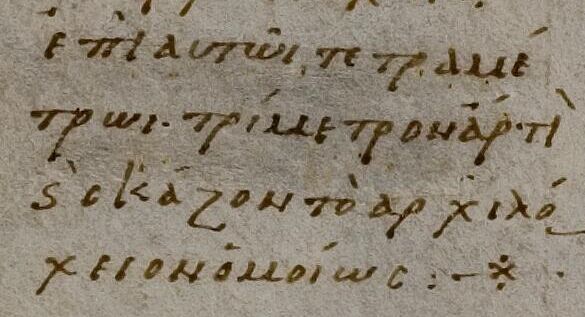 ἐπὶ αὐτῶι τετραμέ
τρωι· τρίμετρον
ϛ̀ σκάζον τὸ ἀρχιλό
χειον ὁμοίως :–※